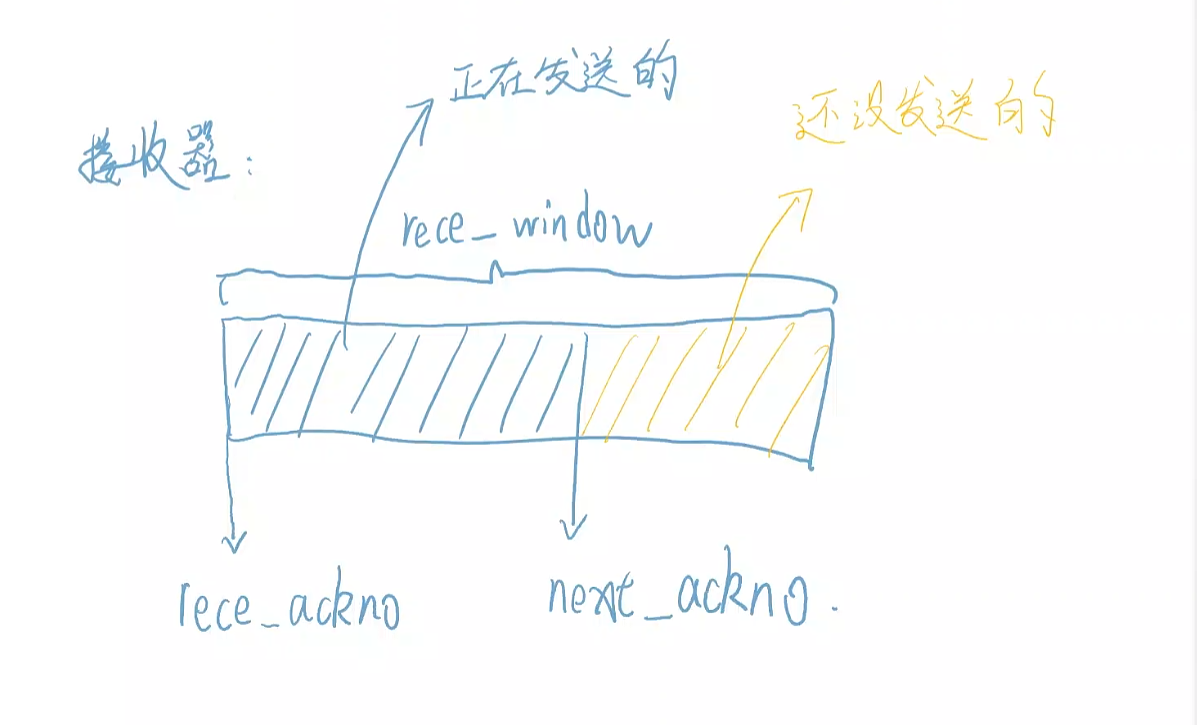 正在发送的
还没发送的
接收器：
rece_window
rece_ackno
next_ackno.